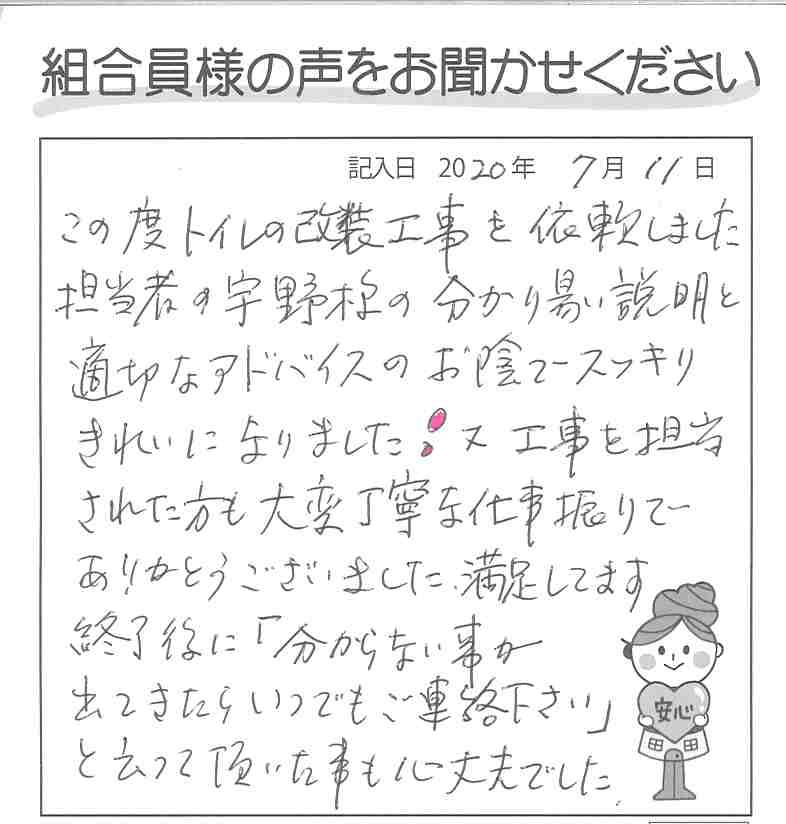 組合員様の声をお聞かせください
記入日 2020年 7月 11日
この度トイレの改装工事を依頼しました
担当者の宇野様の分かり易い説明と
適切なアドバイスのお陰でスッキリ
きれいになりました! 又 工事を担当
された方も大変丁寧な仕事振りで
ありがとうございました.満足してます
終了後に「分からない事が
出てきたらいつでもご連絡下さい」
と云って頂いた事も心丈夫でした.
安心